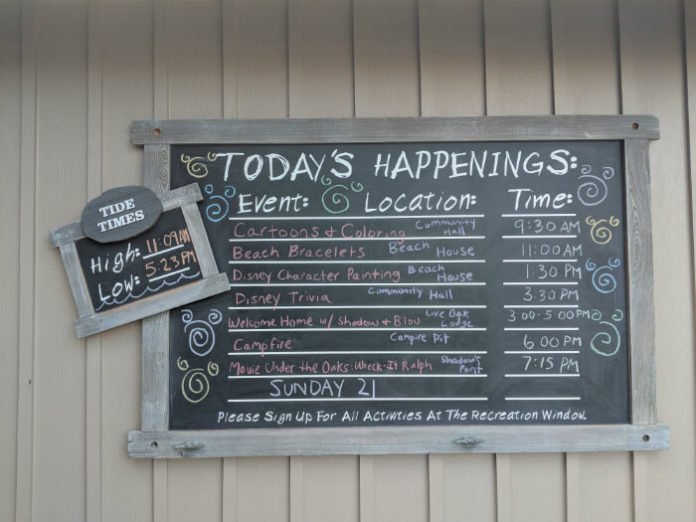 TODAY'S HAPPENINGS:
Event: Location: Time:
Cartoons & Coloring Community Hall 9:30 AM
Beach Bracelets Beach House 11:00 AM
Disney Character Painting Beach House 1:30 PM
Disney Trivia Community Hall 3:30 PM
Welcome Home w/ Shadow & Blou Live Oak Lodge 3:00-5:00PM
Campfire Campire Pit 6:00 PM
Movie Under the Oaks: Wreck-It Ralph Shadow's Point 7:15 PM
SUNDAY 21
Please Sign Up For All Activities At The Recreation Window.
TIDE
TIMES
High: 11:09AM
Low: 5:23 PM